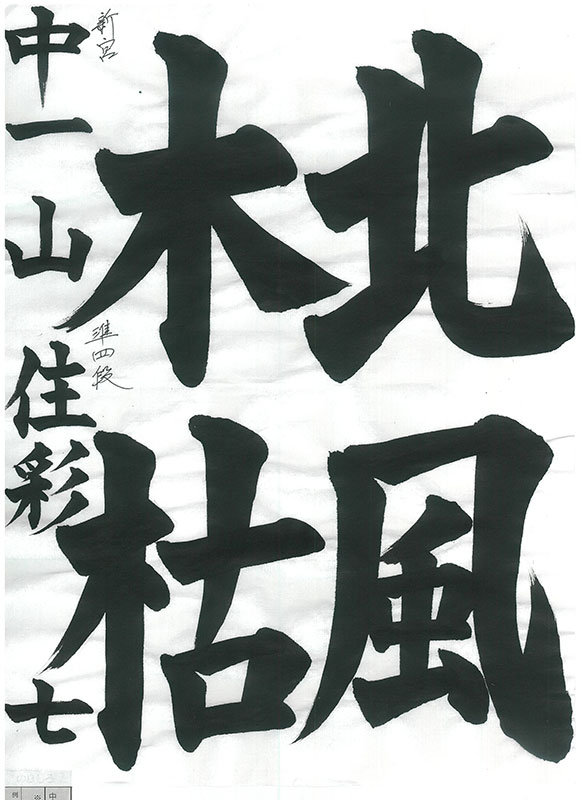 北風
木枯
新宮
準四段
中一 山住彩七